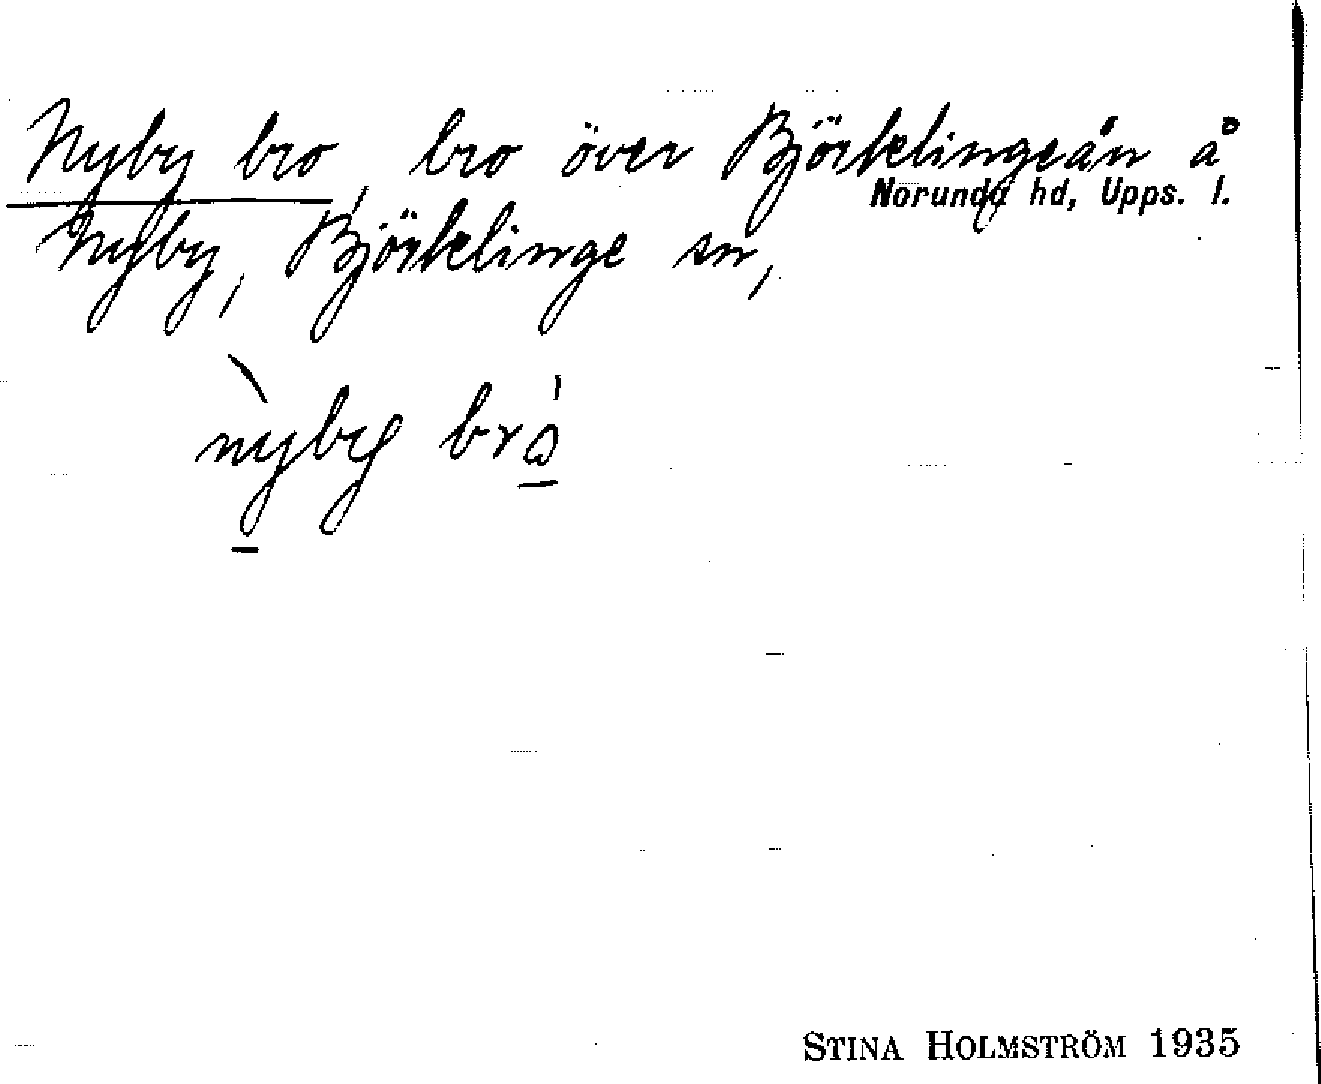 Nyby bro, bro över Björklingeån å
Norunda hd, Upps. l.
Nyby, Björklinge sn,
nyby brω
STINA HOLMSTRÖM 1935